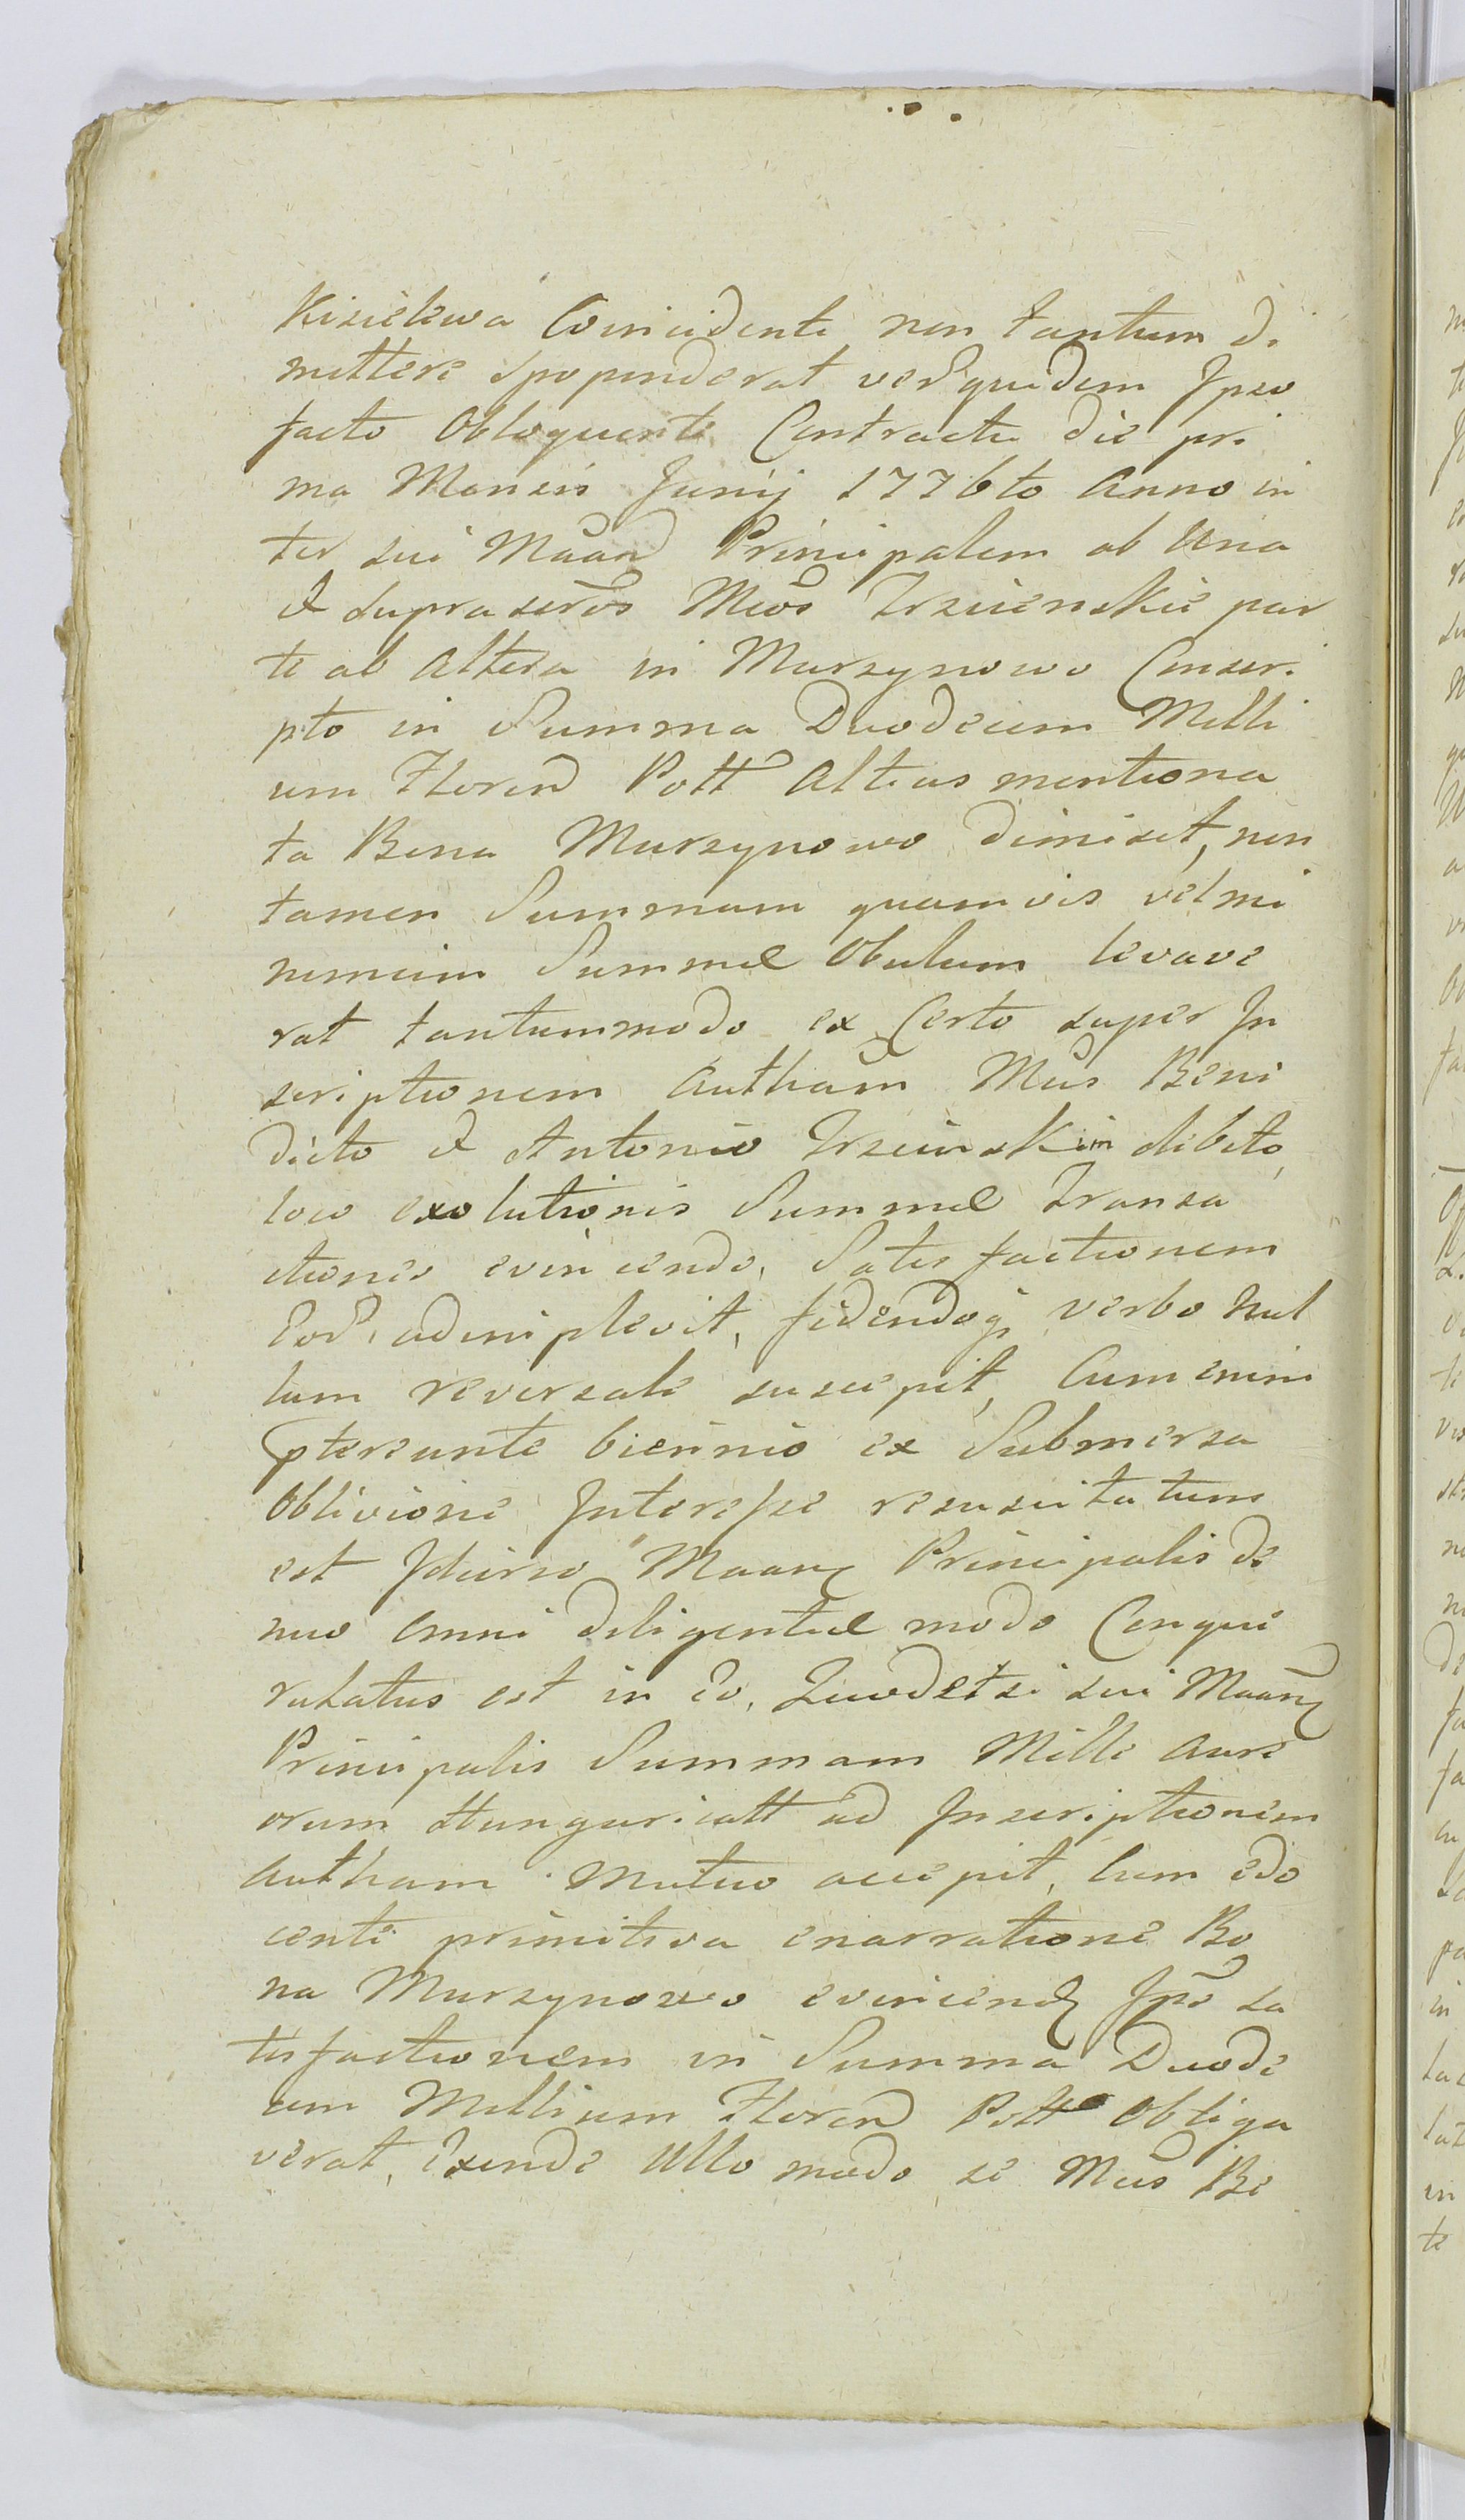 Kisielewa Coincidente non tantum di
mittere spopenderat verũ quidem Ipso
facto Obloquente Contractu die pri
ma Mensis Junij 1776to Anno in
ter sui Maand Principalem ab Una
et suprascros Mcos Trzcienskie par
te ab altera in Murzynowo Conscri
pto in Summa Duodecim Milli
um Floren Poll Altius mentiona
ta Bona Murzynowo dimisit, non
tamen Summam quamvis vel mi
nimum Summæ Obulum levave
rat tantummodo ex Certo super In
scriptionem Autham Mcis Beni
dicto et Antonio Trzcinskim debito,
loco exolutionis Summæ Transa
ctiones evinciendo, Satisfactionem
Eod. adimplevit, fidendoq verbo Nul
lum reversale suscepit, Cum enim
ptereunte biennio ex Submersa
Oblivione Interesse resuscitatum
est Idcirco Maand Principalis de
nuo omni diligentiæ modo Conqui
rulatus est in Eo, Quod etsi sui Maand
Principalis Summam Mille Aure
orum Hungaricall ad Inscriptionem
Autham Mutuo accepit, Cum edo
cente primitiva enarratione Bo
na Murzynowo eviniend Ipse sa
tisfactionem in Summa Duode
cim Millium Floren Poll Obliga
verat, Exinde Ullo modo se Mcus Be